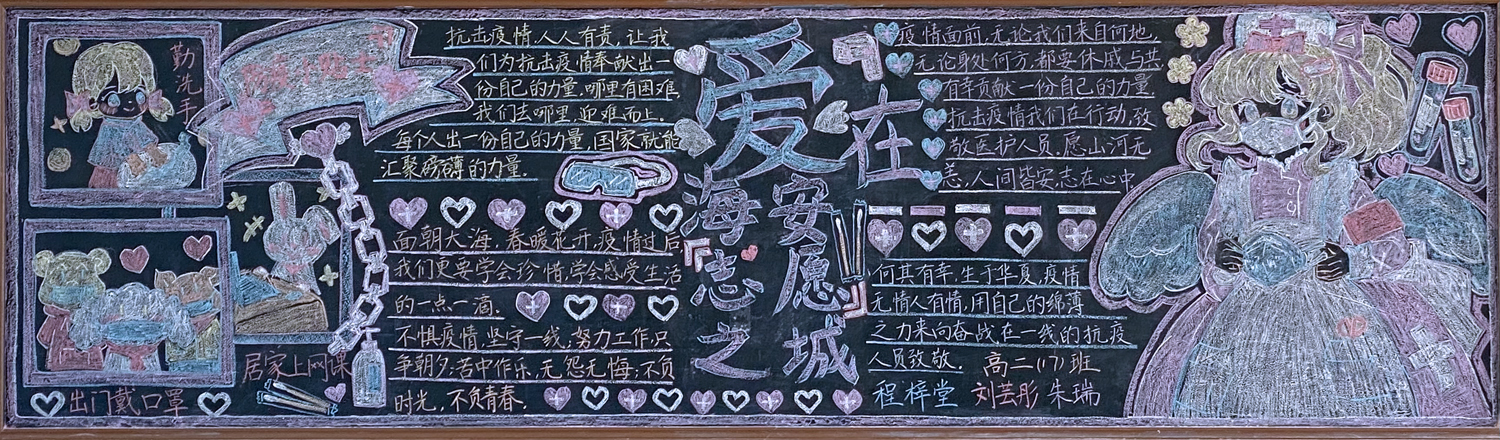 勤洗手
防疫小贴士
出门戴口罩
居家上网课
抗击疫情,人人有责,让我
们为抗击疫情奉献出一
份自己的力量,哪里有困难
我们去哪里,迎难而上.
每个人出一份自己的力量,国家就能
汇聚磅礴的力量.
面朝大海,春暖花开,疫情过后
我们更要学会珍惜,学会感受生活
的一点一滴.
不惧疫情,坚守一线,努力工作,只
争朝夕;苦中作乐,无怨无悔;不负
时光,不负青春.
爱在
海志之
安愿城
疫情面前,无论我们来自何地,
无论身处何方,都要休戚与共
有幸贡献一份自己的力量
抗击疫情我们在行动,致
敬医护人员,愿山河无
恙,人间皆安志在心中
何其有幸,生于华夏,疫情
无情人有情,用自己的绵薄
之力来向奋战在一线的抗疫
人员致敬.
高二(17)班
程梓堂 刘芸彤 朱瑞